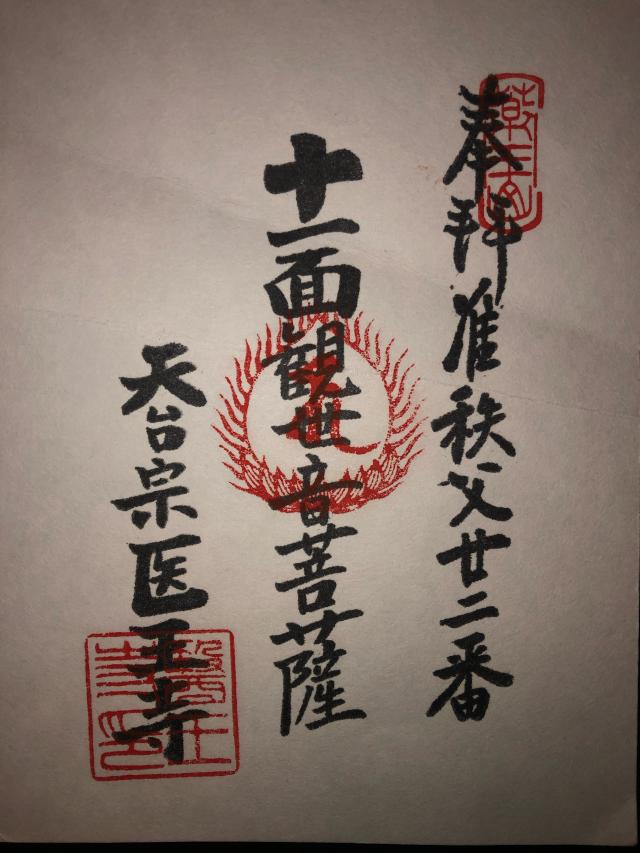 奉拝准秩父廿二番
十一面観世音菩薩
天台宗医王寺